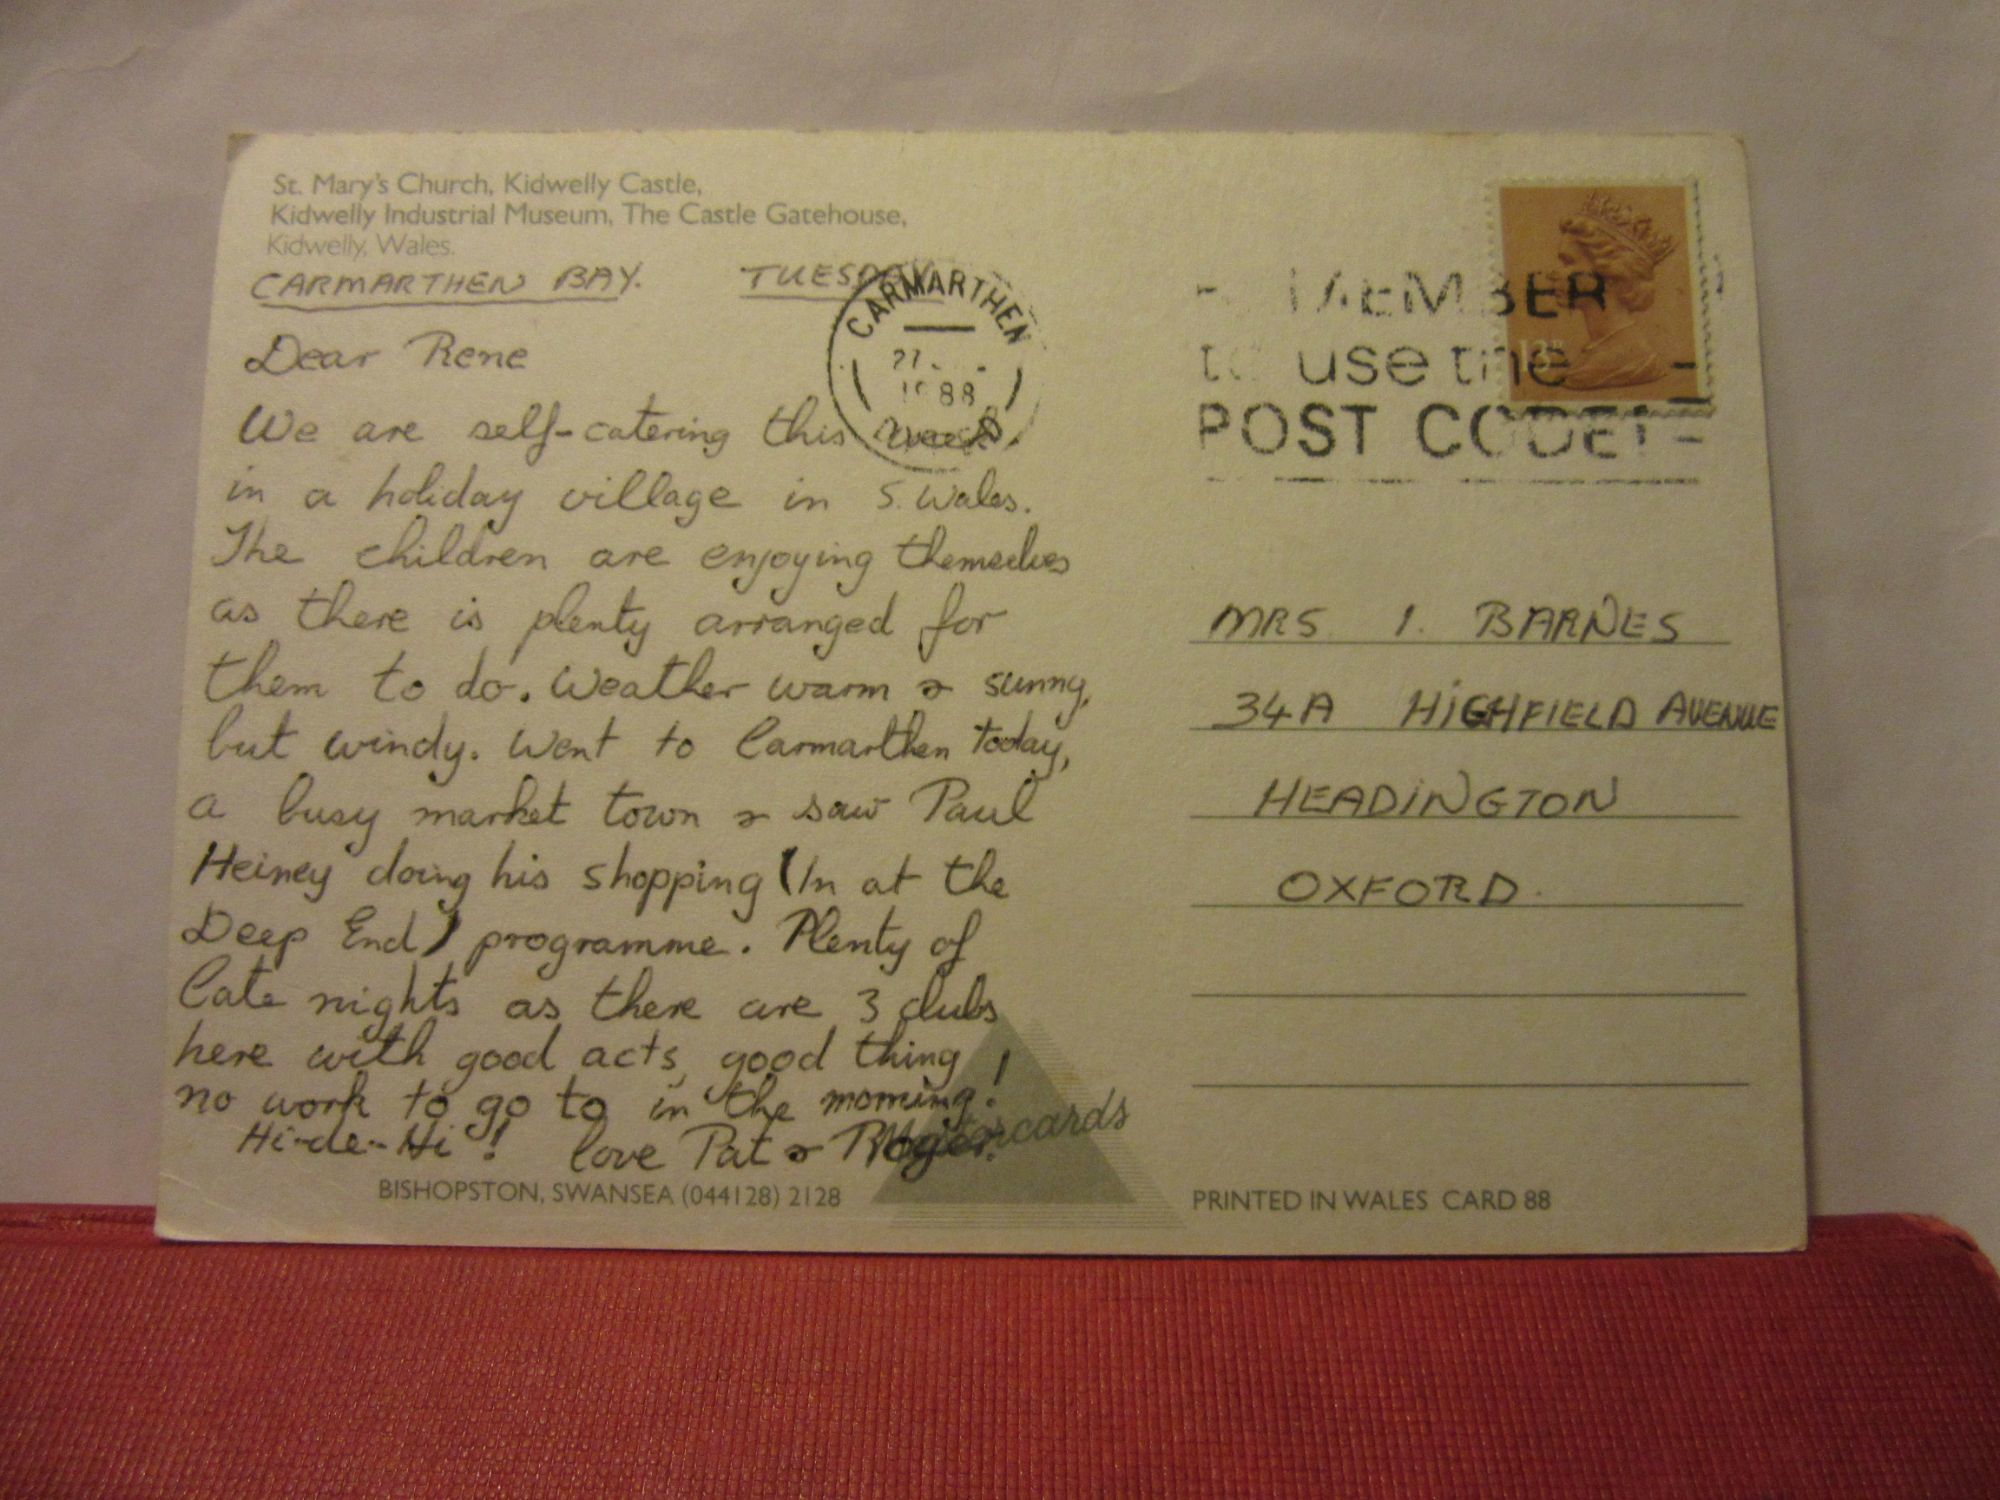 St. Mary's Church, Kidwelly Castle,
Kidwelly Industrial Museum, The Castle Gatehouse,
Kidwelly, Wales.
CARMARTHEN BAY. TUESDAY
Dear Rene
We are self-catering this week
in a holiday village in S. Wales.
The children are enjoying themselves
as there is plenty arranged for
them to do. Weather warm & sunny,
but windy. Went to Carmarthen today,
a busy market town & saw Paul
Heiney doing his shopping (In at the
Deep End) programme. Plenty of
late nights as there are 3 clubs
here with good acts, good thing
no work to go to in the morning!
Hi-de-Hi! love Pat & Roger.
BISHOPSTON, SWANSEA (044128) 2128
CARMARTHEN
1988
use the
POST CODE!
13P
MRS I. BARNES
34A HIGHFIELD AVENUE
HEADINGTON
OXFORD.
PRINTED IN WALES CARD 88